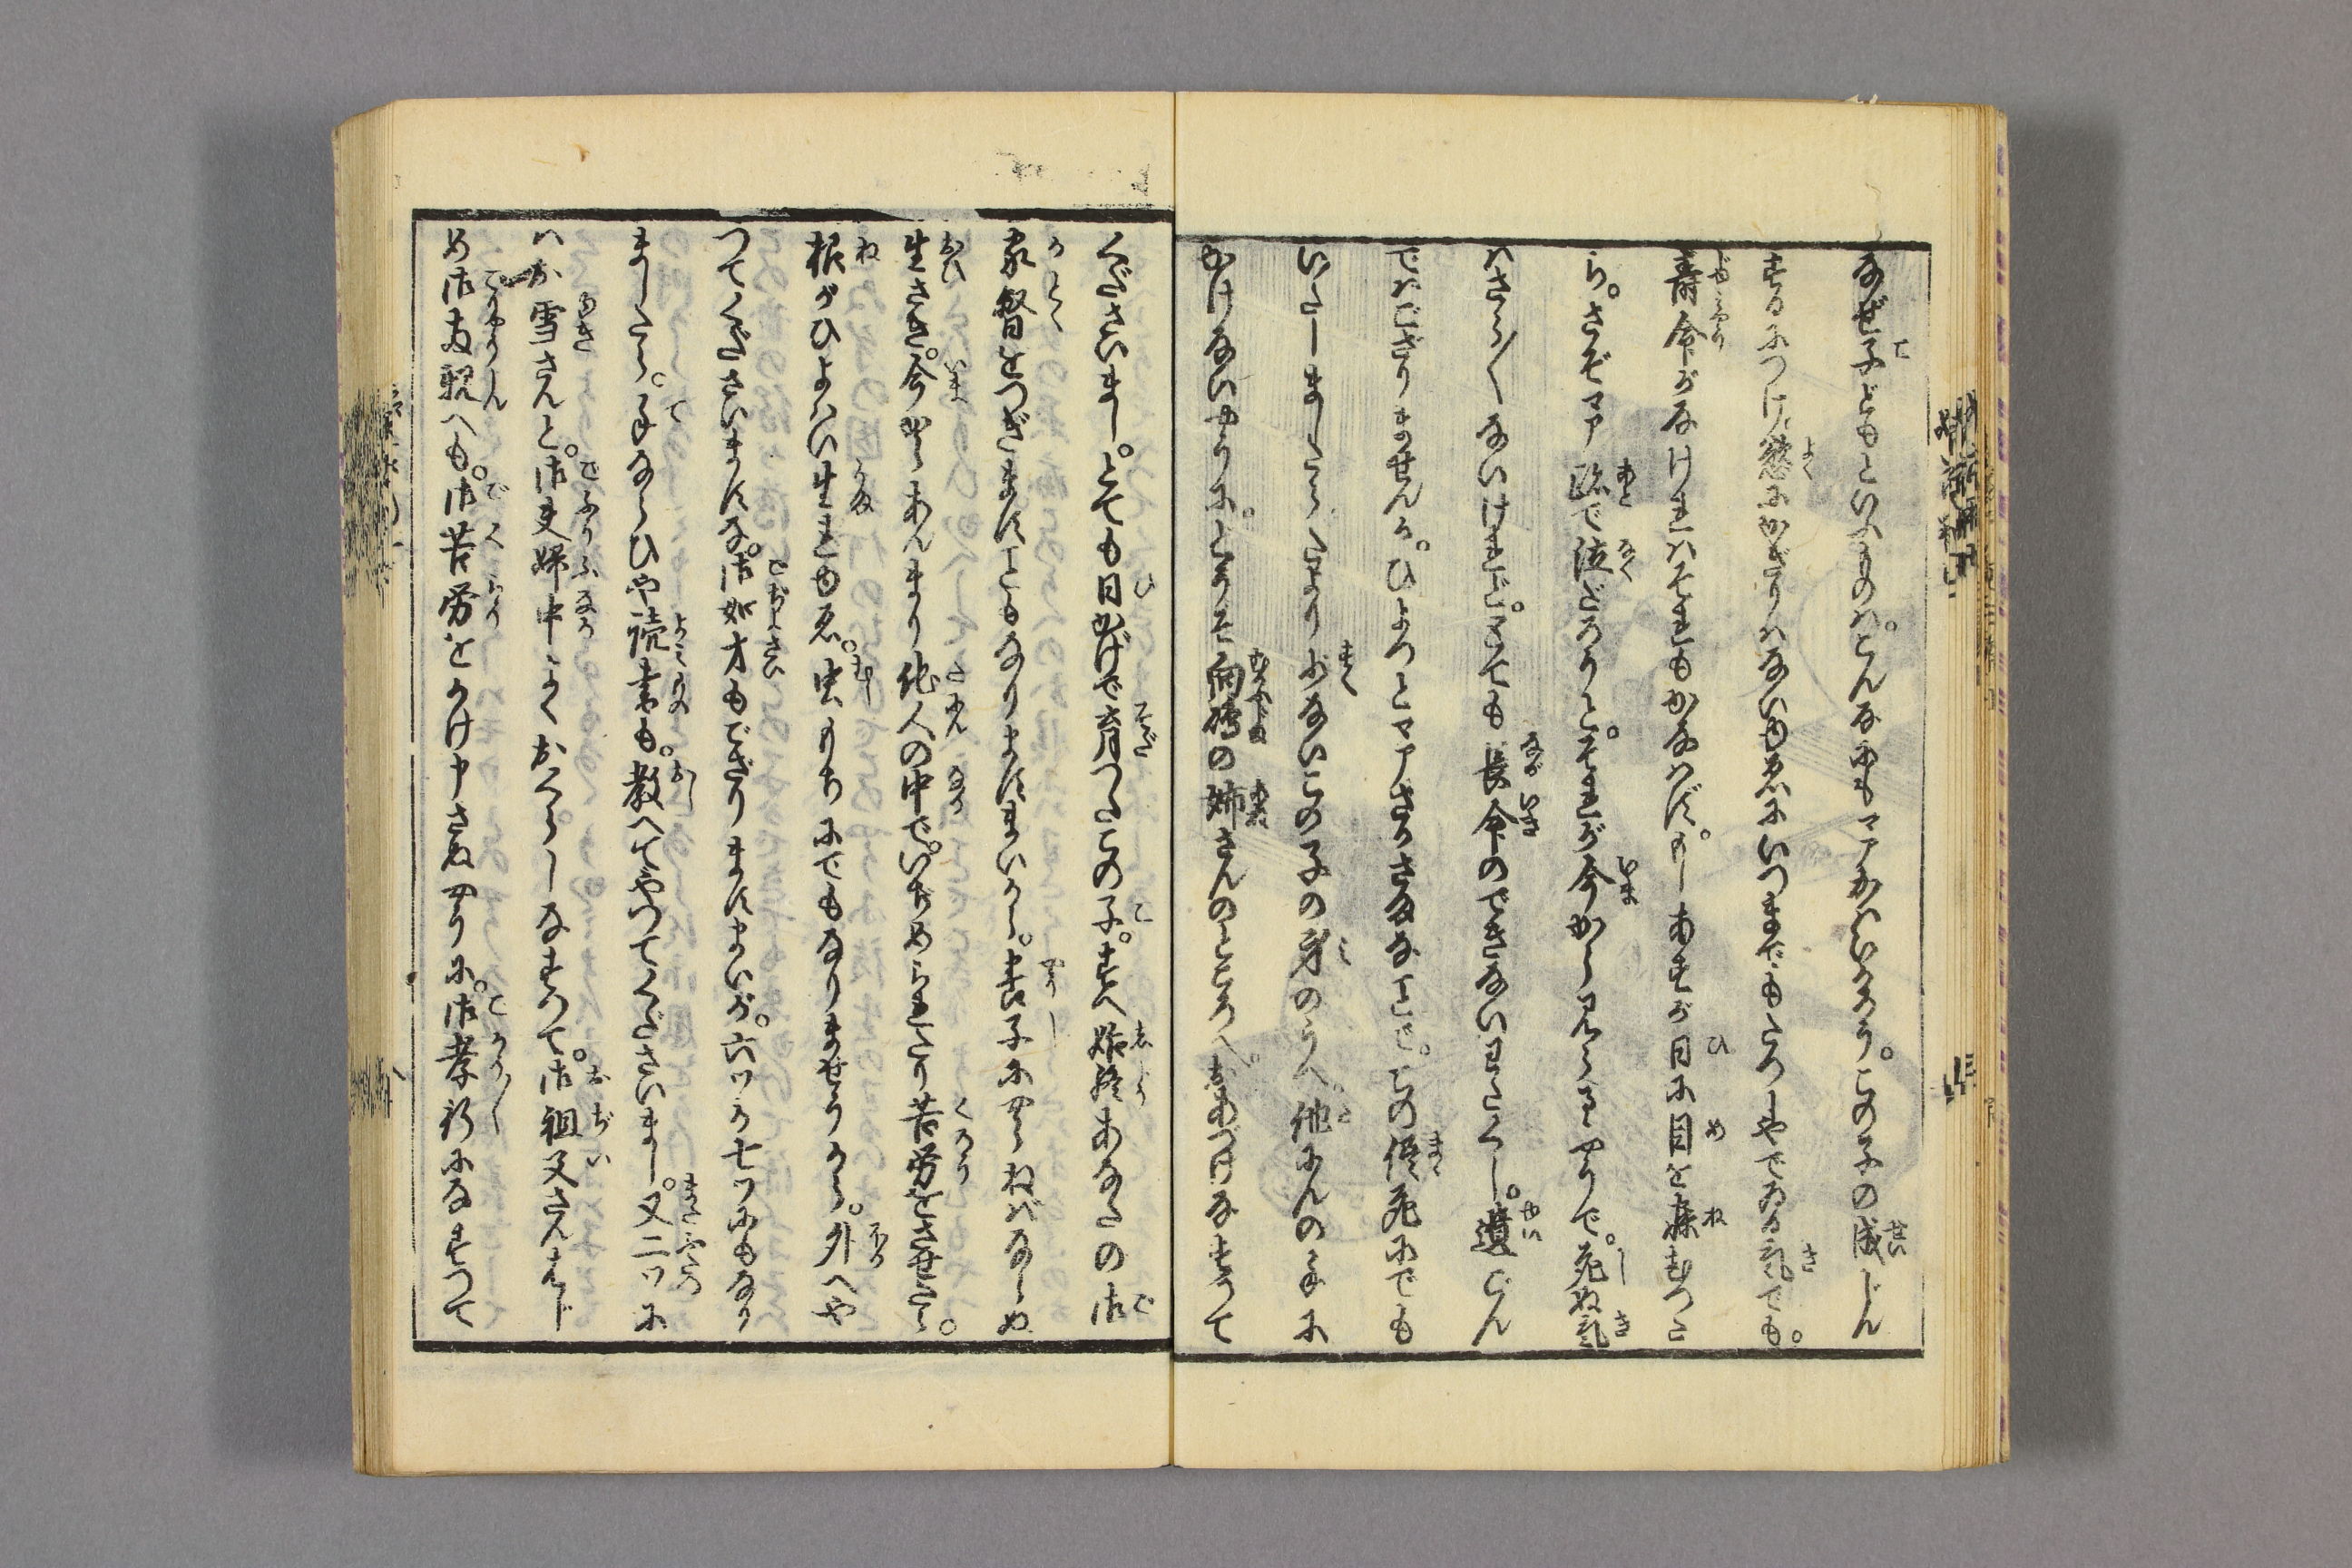 なぜ子どもといふものは。とんなにもマアかはいゝろう。この子の成じん
するにつけ慾にかぎりはないもあにいつまでもたつしやでゐる氣でも。
壽命がなけれはそれもかなはず。もしあすが日に目を寐むつた
ら。さぞマア跡で泣だろうと。それが今から見へるやうで。死ぬ氣
はさら〳〵ないけれど。とても長命のできないわたくし。遺ごん
ではござりませんが。ひよつとマアさうさななことで。この侭死にでも
いたしましたらたより少ないこの子の身のうへ他にんの手に
かけないやうに。どうぞ向嶋の姉さんのところへ。おあづけなすつて
くださいまし。とても日かげで育つたこの子。すへ始終あなたの御
家督をつぎますこともなりますまいから。里子にやらねばならぬ
生さき。今からあんまり他人の中で。いぢめられたり苦労をさせたら。
根がひよはい生れもの。虫もちにでもなりませうから。外へや
つてくださいますな。御如才もござりますまいが。六ツか七ツにもなり
ましたら。手ならひや読書も。教へてやつてくださいまし。又二ツに
はお雪さんと。御夫婦中よくおくらしなすつて。御祖父さんはじ
め御両親へも。御苦労をかけ申さぬやうに。御孝行になすつて